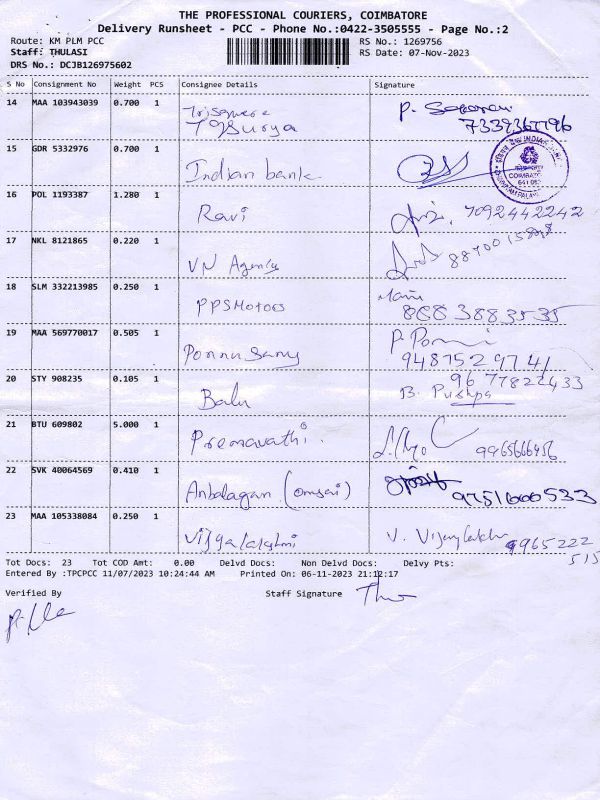 THE PROFESSIONAL COURIERS, COIMBATORE
Delivery Runsheet - PCC - Phone No.:0422-3505555 - Page No.:2
Route: KM PLM PCC RS No.: 1269756
Staff: THULASI RS Date: 07-Nov-2023
DRS No.: DCJB126975602
S No Consignment No Weight PCS Consignee Details Signature
14 MAA 103943039 0.700 1
Surya 7339367796
15 GDR 5332976 0.700 1 Indian bank
COIMBATORE
16 POL 1193387 1.280 1 Ravi 7092442242
17 NKL 8121865 0.220 1 VN Agency
18 SLM 332213985 0.250 1 PPS Motors Mani
868 3883535
19 MAA 569770017 0.505 1 Ponnusamy P. Ponni
9487529741
20 STY 908235 0.105 1 Balu 9677822433
B. Pushpa
21 BTU 609802 5.000 1 Premavathi. 9965666456
22 SVK 40064569 0.410 1 Anbalagan (omsai) 9751600533
23 MAA 105338084 0.250 1 Vijyalakshmi V. Vijaylakshmi 9965222
515
Tot Docs: 23 Tot COD Amt: 0.00 Delvd Docs: Non Delvd Docs: Delvy Pts:
Entered By :TPCPCC 11/07/2023 10:24:44 AM Printed On: 06-11-2023 21:12:17
Verified By Staff Signature